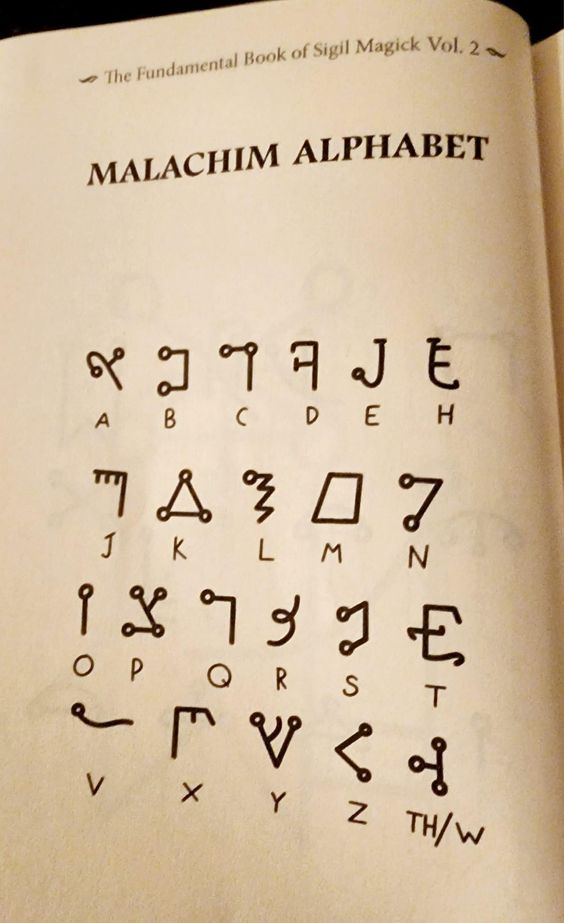 The Fundamental Book of Sigil Magick Vol. 2
MALACHIM ALPHABET
A B C D E H
J K L M N
O P Q R S T
V X Y Z TH/W